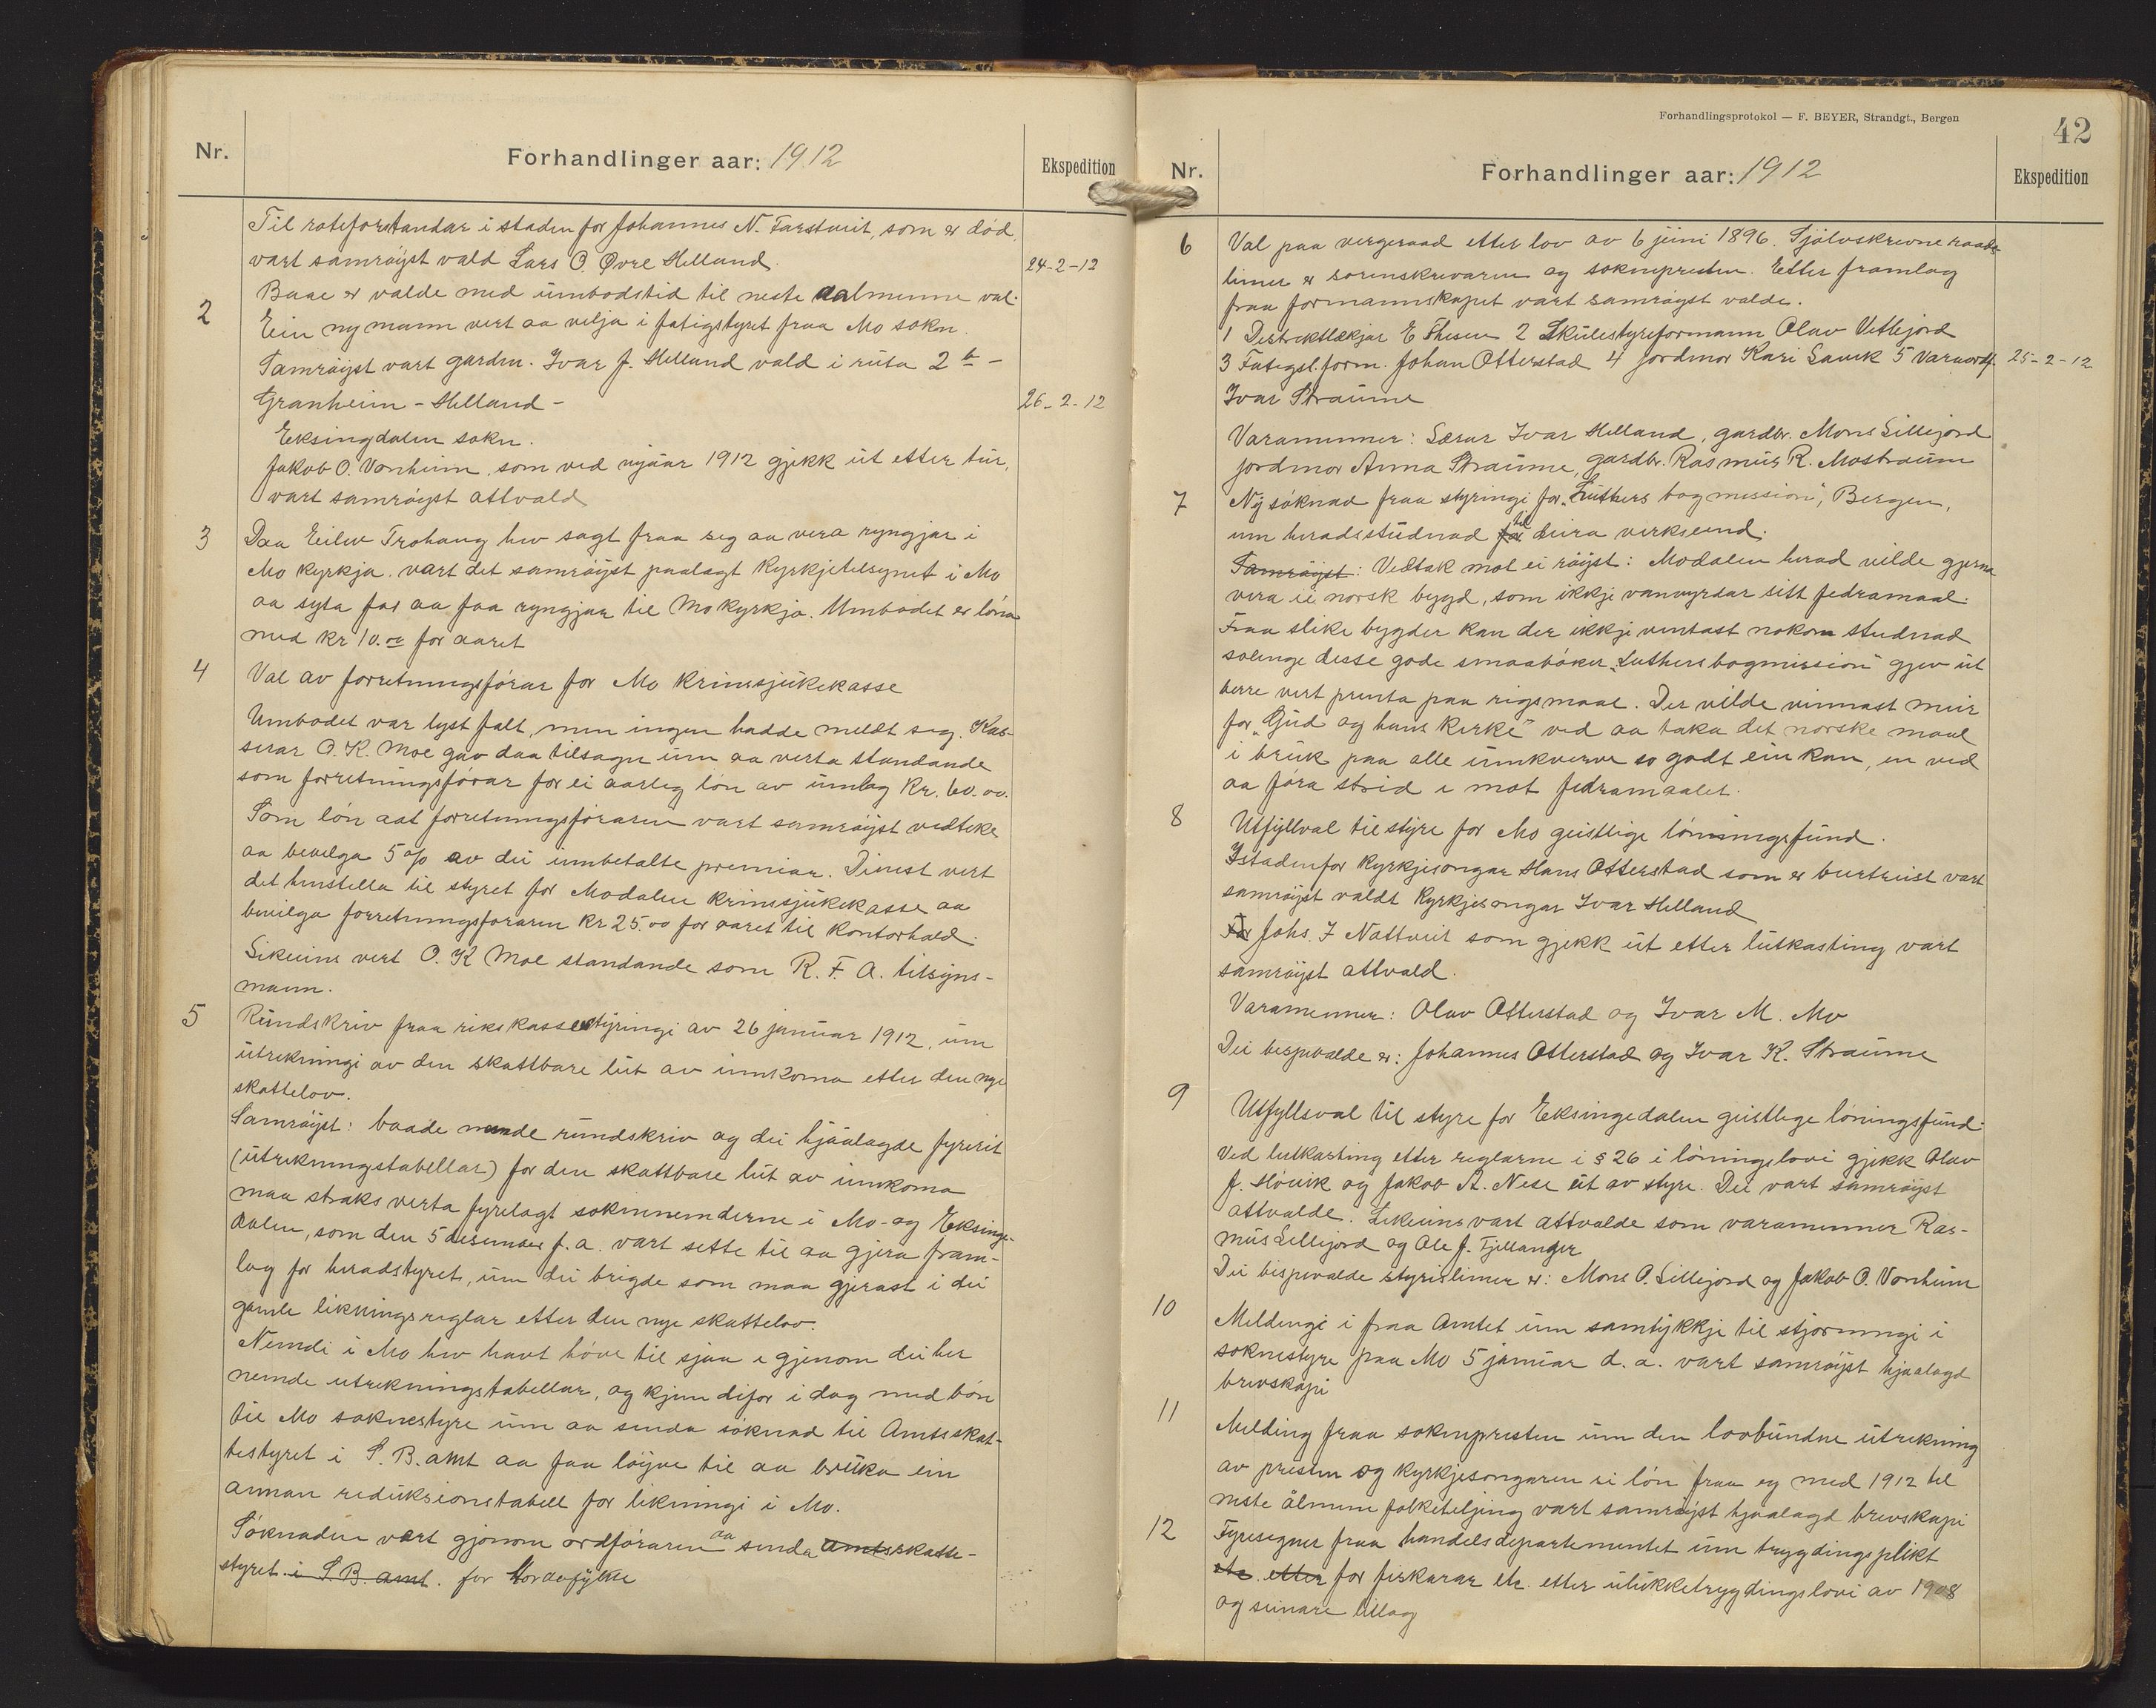 Nr.
Forhandlinger aar: 1912
Ekspedition
Til roteforstandar i staden for Johannes N. Farstveit, som er död,
vart samröyst vald Lars O. Øvre Helland. 24-2-12
Baae er valde med umbodstid til neste aalmenne val.
2 Ein ny mann vert aa velja i fatigstyret fraa Mo sokn.
Samröyst vart gardm. Ivar J. Helland vald i ruta 2 –
Granheim – Helland – 26-2-12
Eksingdalen sokn.
Jakob O. Vonheim, som ved nyaar 1912 gjekk ut etter tur,
vart samröyst attvald
3 Daa Eiliv Trohaug hev sagt fraa seg aa vera ryngjar i
Mo kyrkja. vart det samröyst paalagt Kyrkjetilsynet i Mo
aa syta for aa faa ryngjar til Mo kyrkja. Umbodet er löna
med kr 10.00 for aaret
4 Val av forretningsförar for Mo krinssjukekasse
Umbodet var lyst falt, men ingen hadde meldt seg. Kas-
serar O. K. Moe gav daa tilsagn um aa verta standande
som forretningsförar for ei aarleg lön av umlag Kr. 60.00.
Som lön aat forretningsföraren vart samröyst vedteke
aa bevilga 5% av dei innbetalte premiar. Dinest vert
det henstella til styret for Modalen krinssjukekasse aa
bevilga forretningsföraren kr 25.00 for aaret til Kontorhald.
Sikeins vert O. K Moe standande som R. F. A. tilsyns-
mann.
5 Rundskriv fraa rikskassestyringi av 26 januar 1912, um
utrekningi av den skattbare lut av innkoma etter den nye
skattelov.
Samröyst: baade nemde rundskriv og dei hjaalagde fyrerit
(utrekningstabellar) for den skattbare lut av innkoma
maa straks verta fyrelagt soknenemderne i Mo- og Eksinge-
dalen, som den 5 desember f. a. vart sette til aa gjera fram-
lag for heradstyret, um dei brigde som maa gjerast i dei
gamle likningsreglar etter den nye skattelov.
Nemdi i Mo hev havt höve til sjaa i gjenom dei her
nemde utrekningstabellar, og kjem difor i dag med bön
til Mo soknestyre um aa senda söknad til Amtsskat-
testyret i S. B. amt aa faa löyve til aa bruka ein
annan reduksionstabell for likningi i Mo.
Söknaden vert gjönom ordföraren aa senda amtsskatte-
styret i S. B. amt. for Hordafylke
Forhandlingsprotokol — F. BEYER, Strandgt., Bergen
42
Nr.
Forhandlinger aar: 1912
Ekspedition
6 Val paa vergeraad etter lov av 6 juni 1896. Sjölvskrevne raads-
limer er sorenskrivaren og soknepresten. Etter framlag
fraa formannskapet vart samröyst valde.
1 Distriktslækjar E Thesen 2 Skulestyreformann Olav Vetlejord
3 Fatigst.form. Johan Otterstad 4 Jordmor Kari Lavik 5 Varaordf. 25-2-12
Ivar Straume
Varamenner: Lærar Ivar Helland, gardbr. Mons Lillejord
jordmor Anna Straume, gardbr. Rasmus R. Mostraum
7 Ny söknad fraa styringi for „Luthers bogmission“, Bergen,
um heradsstudnad for til deira verksemd.
Samröyst: Vedtak mot ei röyst: Modalen herad vilde gjerna
vera ei norsk bygd, som ikkje vanvyrdar sitt fedramaal.
Fraa slike bygder kan der ikkje ventast nokon studnad
solenge desse gode smaaböker „Luthers bogmission“ gjev ut
berre vert prenta paa rigsmaal. Der vilde vinnast meir
for „Gud og hans kirke“ ved aa taka det norske maal
i bruk paa alle umkverve so godt ein kan, en ved
aa föra strid i mot fedramaalet.
8 Utfyllval til styre for Mo geistlige lönningsfund.
Istadenfor kyrkjesongar Hans Otterstad som er burtreist vart
samröyst valdt Kyrkjesongar Ivar Helland
For Johs. I Nattveit som gjekk ut etter lutkasting vart
samröyst attvald.
Varamenner: Olav Otterstad og Ivar M. Mo
Dei bispevalde er: Johannes Otterstad og Ivar K. Straume
9 Utfyllsval til styre for Eksingedalen geistlege löningsfund.
Ved lutkasting etter reglarne i § 26 i löningslovi gjekk Olav
J. Hövik og Jakob A. Nese ut av styre. Dei vart samröyst
attvalde. Likeeins vart attvalde som varamenner Ras-
mus Lillejord og Ole J. Fjellanger
Dei bispevalde styrislimer er: Mons O. Lillejord og Jakob O. Vonheim
10 Meldingi i fraa Amtet um samtykkje til stjorningi i
soknestyre paa Mo 5 januar d. a. vart samröyst hjaalagd
brevskapi
11 Melding fraa soknepresten um den lovbundne utrekning
av presten og kyrkjesongaren si lön fraa og med 1912 til
neste ålmenne folketeljing vart samröyst hjaalagd brevskapi
12 Fyresegner fraa handelsdepartementet um trygdingsplikt
etc. etter for fiskarar etc. etter ulukketrygdingslovi av 1908
og seinare tillag